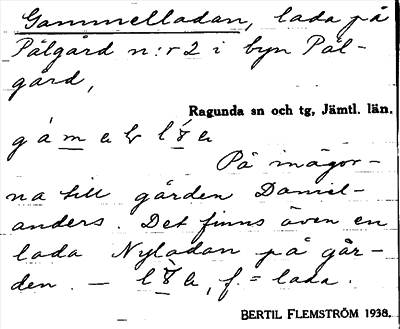 Gammelladan, lada på
Pålgård n:r 2 i byn Pål-
gård,
Ragunda sn och tg, Jämtl. län.
På inägor-
na till gården Daniel-
anders. Det finns även en
lada Nyladan på går-
den. —
f. = lada.
BERTIL FLEMSTRÖM 1938.